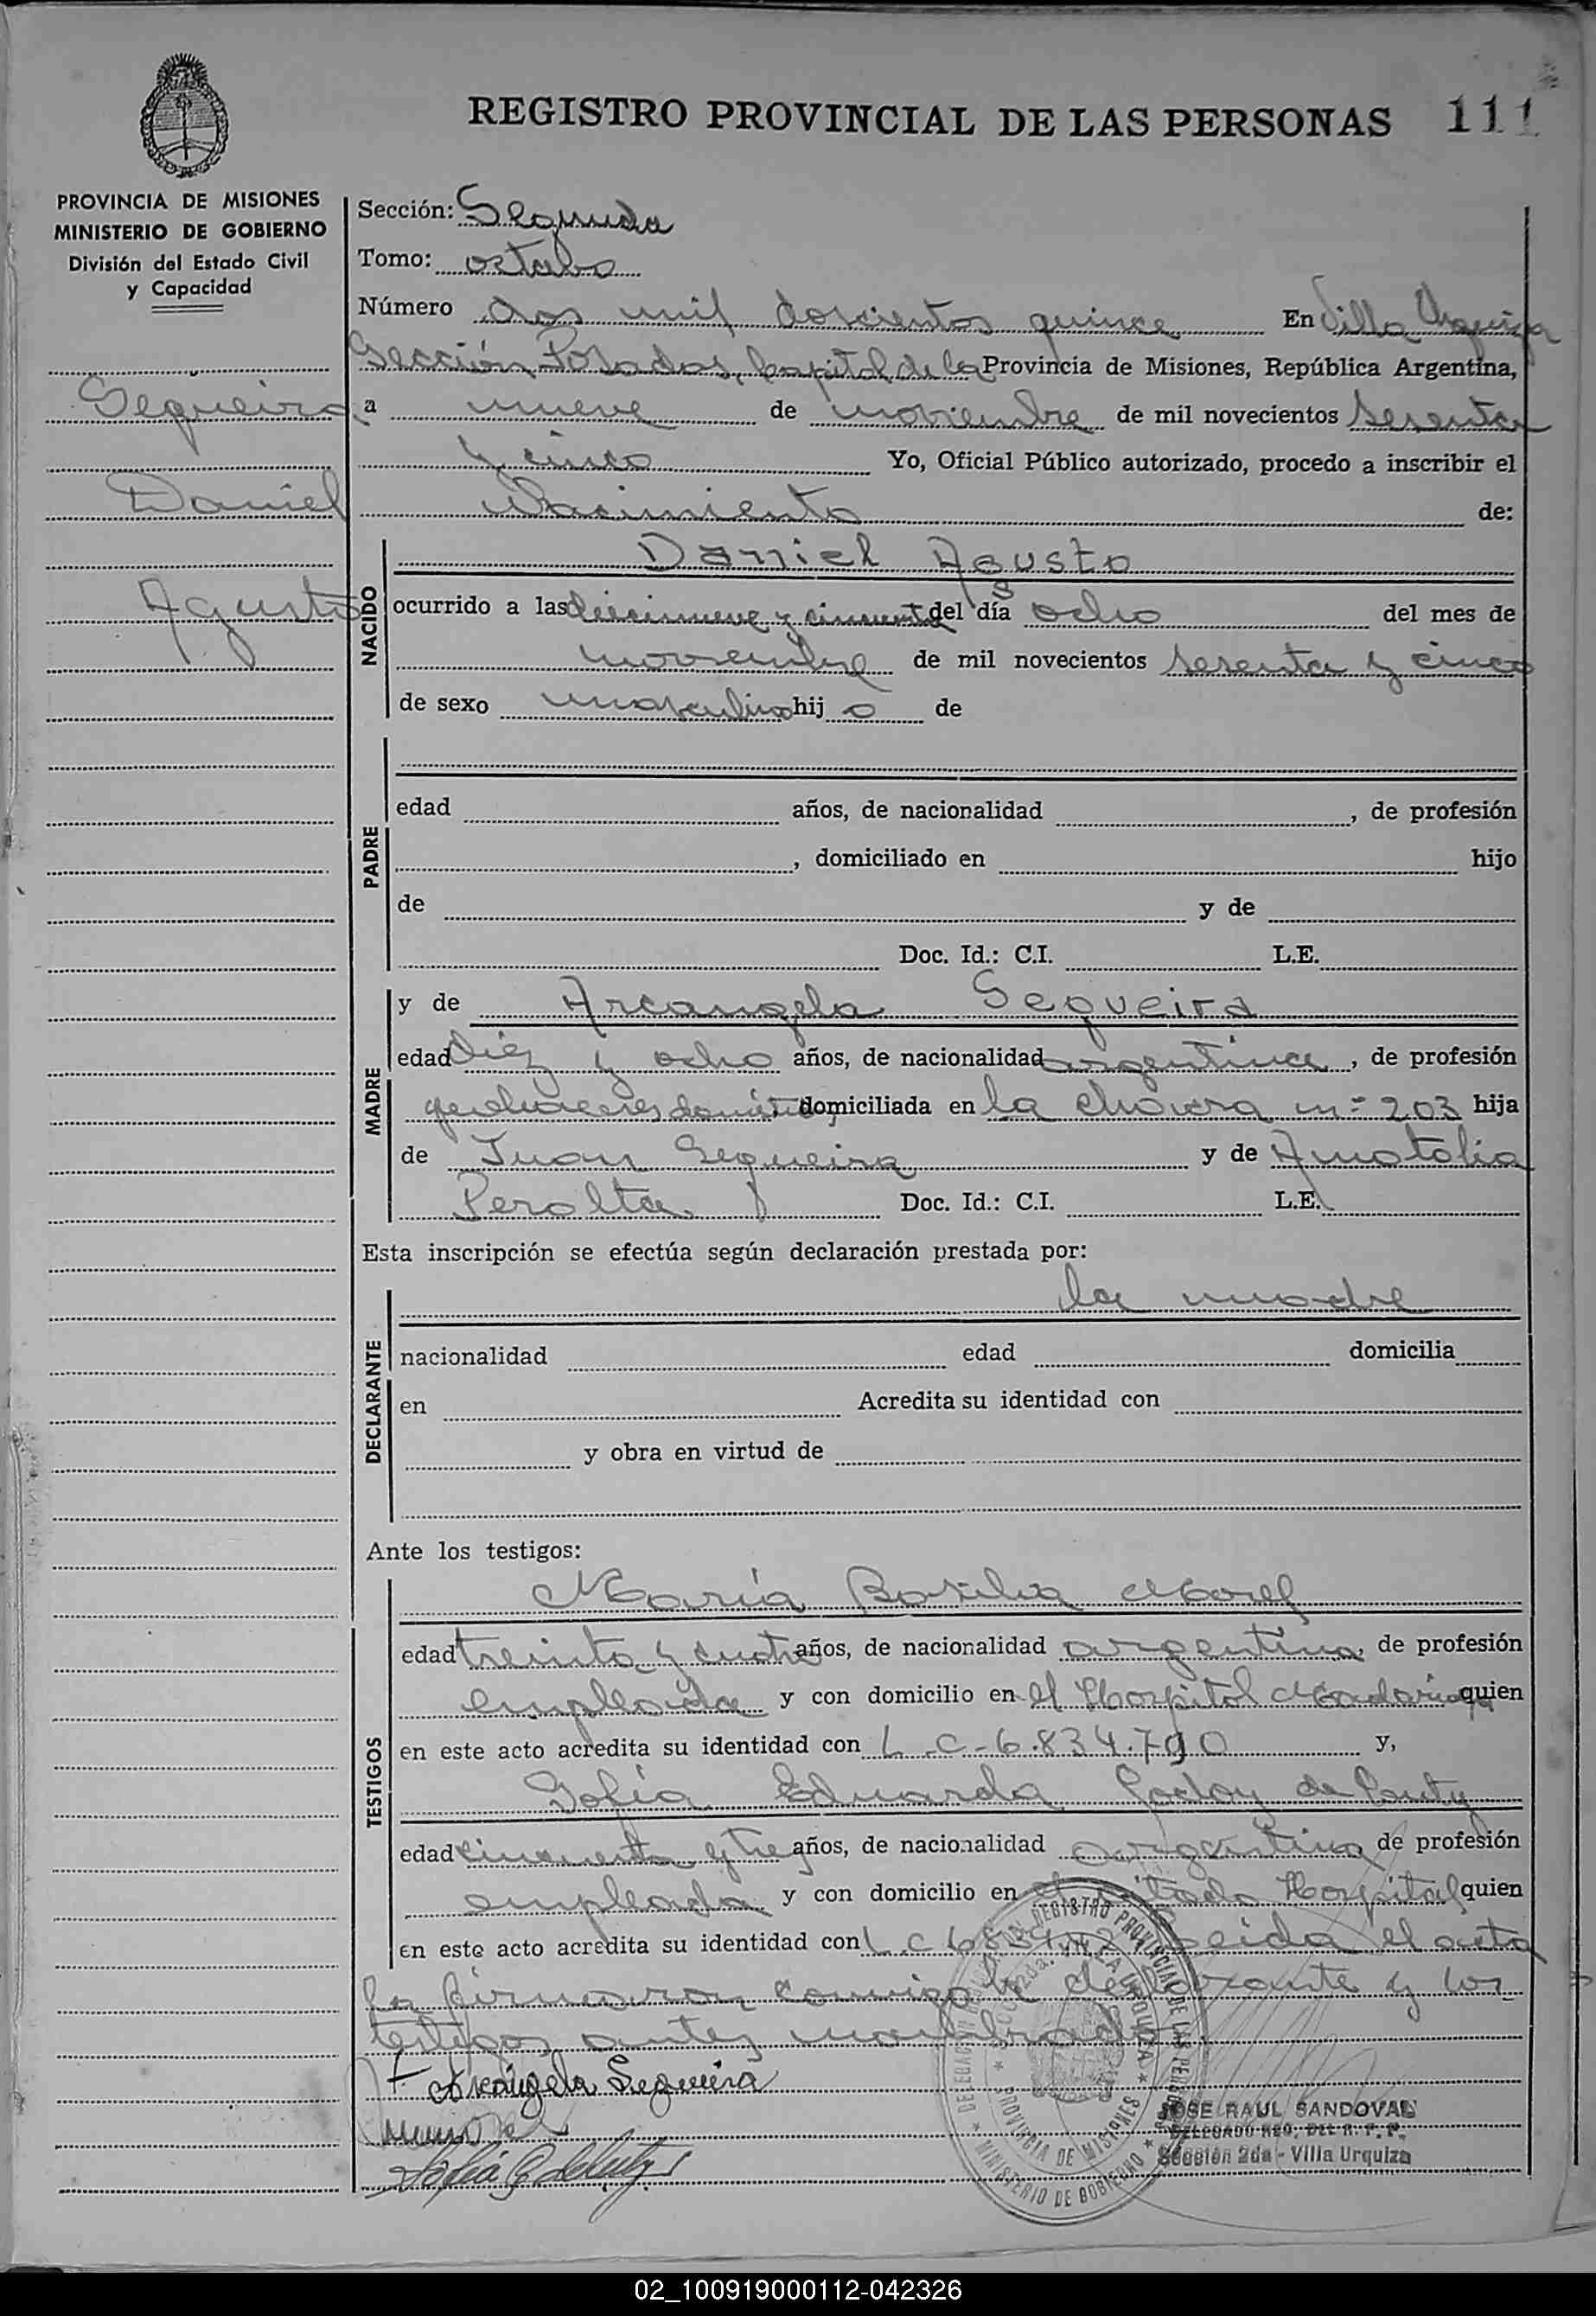 REGISTRO PROVINCIAL DE LAS PERSONAS 111
PROVINCIA DE MISIONES
MINISTERIO DE GOBIERNO
División del Estado Civil
y Capacidad
Sequeira
Daniel
Agusto
Sección: Segunda
Tomo: octabo
Número dos mil doscientos quince En Villa Urquiza
Sección Posadas, Capital de la Provincia de Misiones, República Argentina,
a nueve de noviembre de mil novecientos sesenta
y cinco Yo, Oficial Público autorizado, procedo a inscribir el
Nacimiento de:
NACIDO
Daniel Agusto
ocurrido a las diecinueve y cincuenta del día ocho del mes de
noviembre de mil novecientos sesenta y cinco
de sexo masculino hijo de
PADRE
edad años, de nacionalidad , de profesión
, domiciliado en hijo
de y de
Doc. Id.: C.I. L.E.
MADRE
y de Arcangela Sequeira
edad diez y ocho años, de nacionalidad argentina, de profesión
domiciliada en la chacra n= 203 hija
de Juan Sequeira y de Anatolia
Peralta Doc. Id.: C.I. L.E.
Esta inscripción se efectúa según declaración prestada por:
DECLARANTE
la madre
nacionalidad edad domicilia
en Acredita su identidad con
y obra en virtud de
Ante los testigos:
TESTIGOS
María Morel
edad treinta y cuatro años, de nacionalidad argentina, de profesión
empleada y con domicilio en el Hospital Madariaga quien
en este acto acredita su identidad con L.C-6.834.790 y,
Sofía Eduarda Godoy de
edad cincuenta y tre años, de nacionalidad argentina de profesión
empleada y con domicilio en el citado Hospital quien
en este acto acredita su identidad con L.C Leida el acta
la firmaron conmigo la declarante y los
testigos antes nombrado
Arcángela Sequeira
JOSE RAUL SANDOVAL
Sección 2da - Villa Urquiza
MINISTERIO DE GOBIERNO
PROVINCIA DE MISIONES
02_100919000112-042326